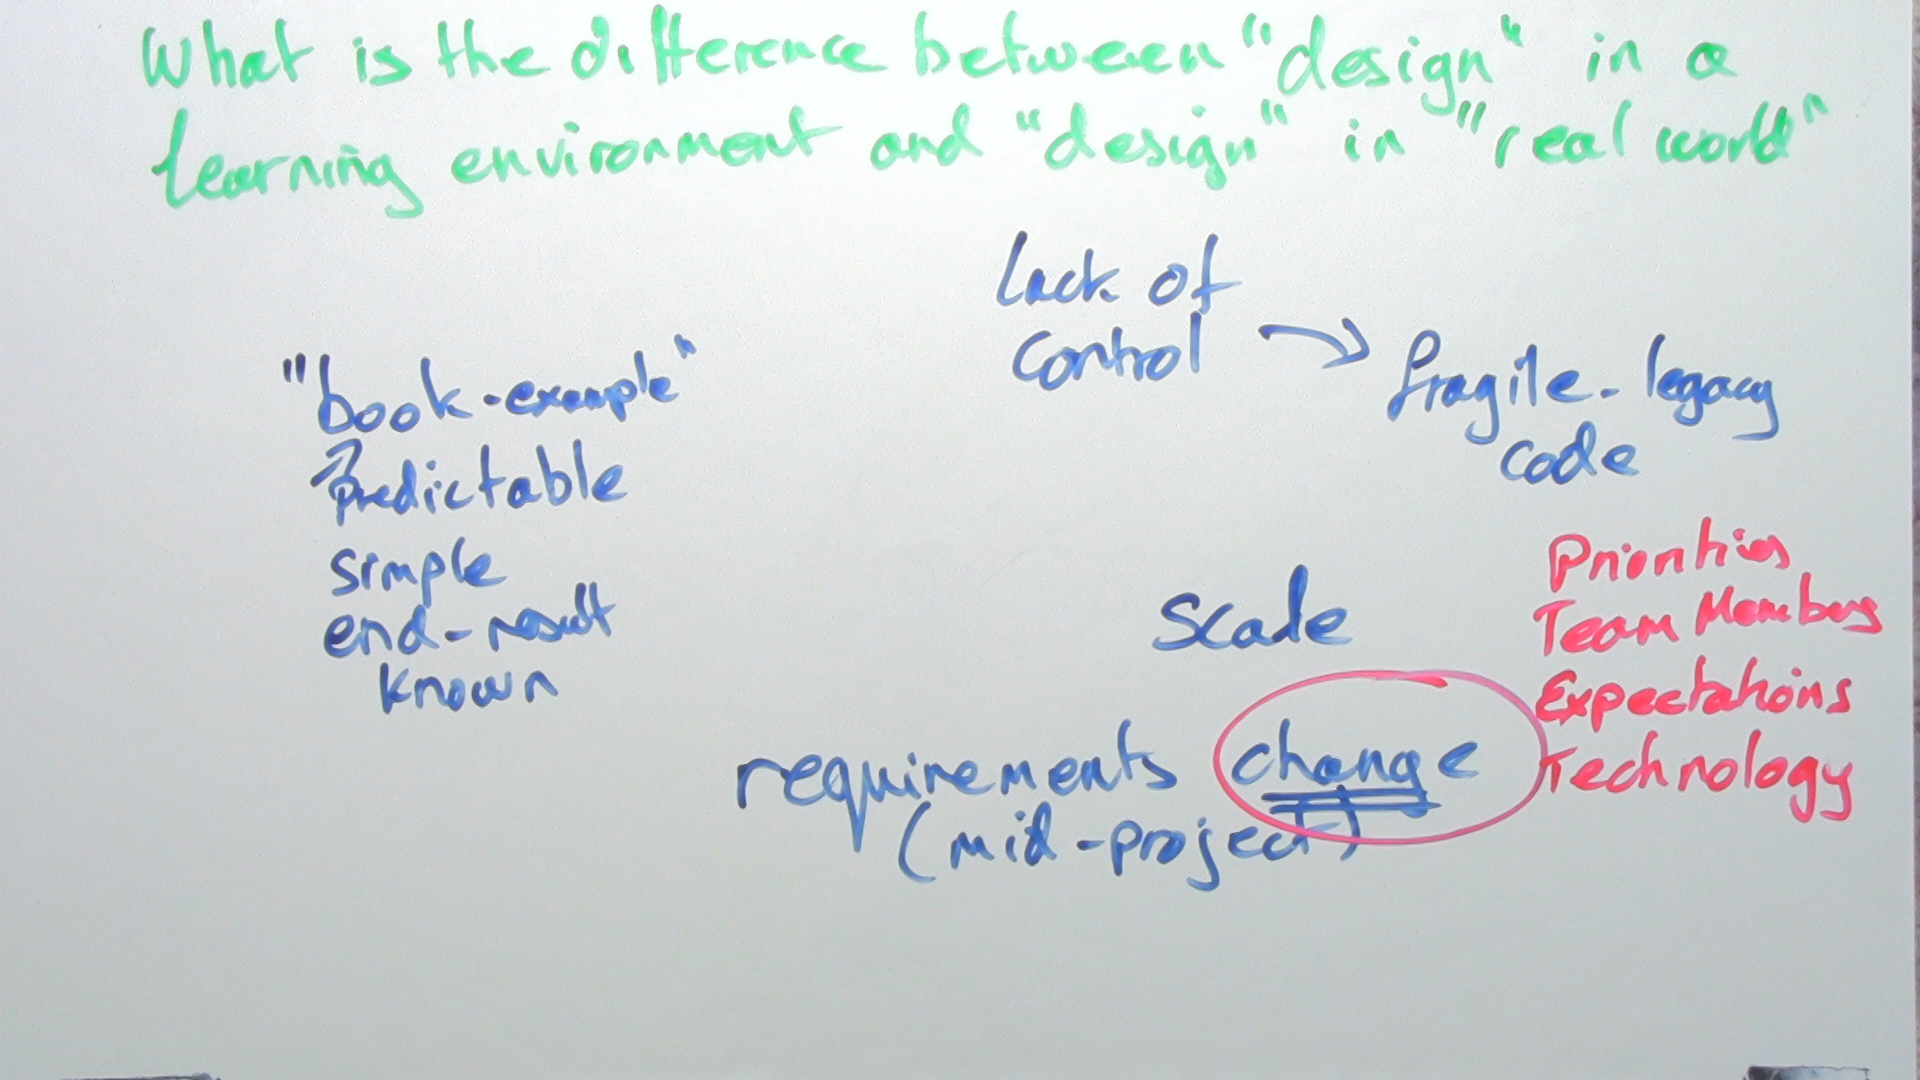 What is the difference between "design" in a
learning environment and "design" in "real world"
"book-example"
Predictable
simple
end-result
known
Lack of
control
fragile-legacy
code
Scale
requirements change
(mid-project)
Priorities
Team Members
Expectations
Technology